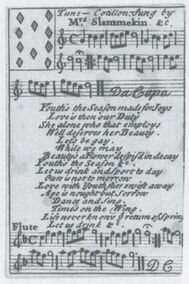 Tune — Cotilion. Sung by
Mrs. Slammekin. &c.
Da Capo
Youth's the Season made for Joys
Love is then our Duty
She alone who that employs
Well deserves her Beauty.
Let's be gay,
While we may
Beauty's a Flower despis'd in decay
Youth's the Season &c.
Let us drink and sport to day
Ours is not to morrow
Love with Youth flies swift away
Age is nought but Sorrow
Dance and Sing,
Time's on the Wing
Life never knows ye return of Spring
Let us drink &c.
Flute
D C